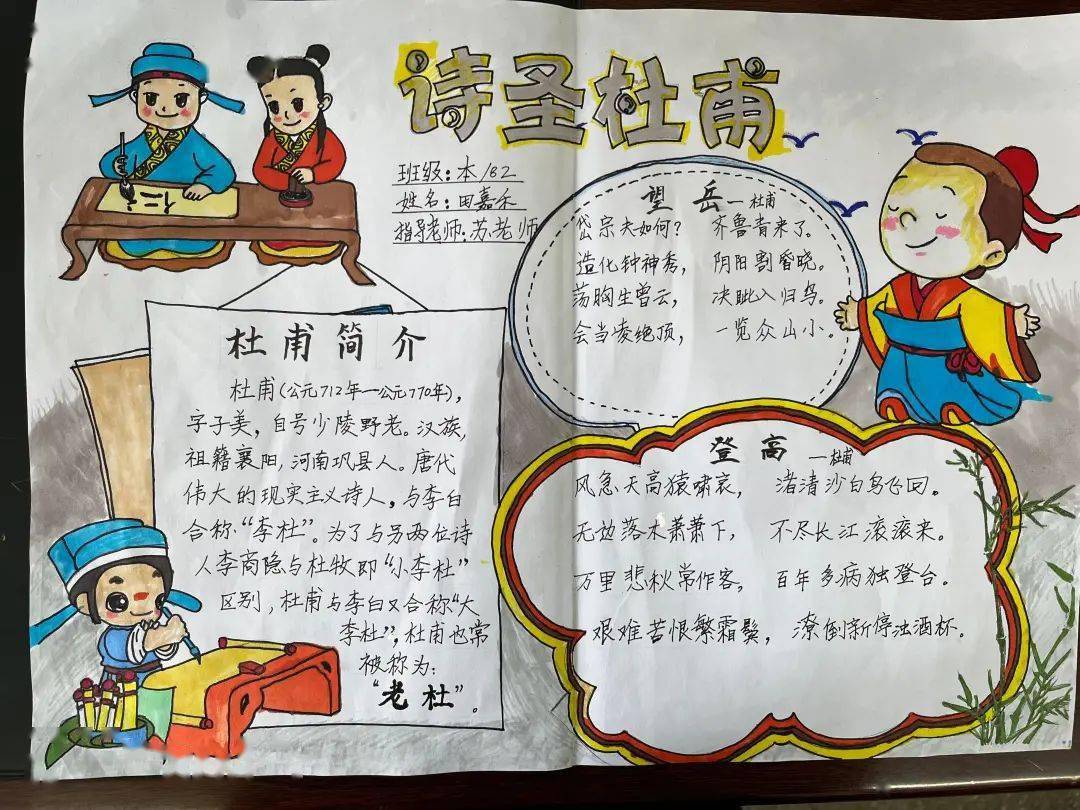 诗圣杜甫
班级:本182
姓名:田嘉禾
指导老师:苏老师
杜甫简介
杜甫(公元712年—公元770年),
字子美,自号少陵野老。汉族,
祖籍襄阳,河南巩县人。唐代
伟大的现实主义诗人,与李白
合称“李杜”。为了与另两位诗
人李商隐与杜牧即“小李杜”
区别,杜甫与李白又合称“大
李杜”,杜甫也常
被称为:
“老杜”。
望岳—杜甫
岱宗夫如何? 齐鲁青来了。
造化钟神秀, 阴阳割昏晓。
荡胸生曾云, 决眦入归鸟。
会当凌绝顶, 一览众山小。
登高—杜甫
风急天高猿啸哀, 渚清沙白鸟飞回。
无边落木萧萧下, 不尽长江滚滚来。
万里悲秋常作客, 百年多病独登台。
艰难苦恨繁霜鬓, 潦倒新停浊酒杯.